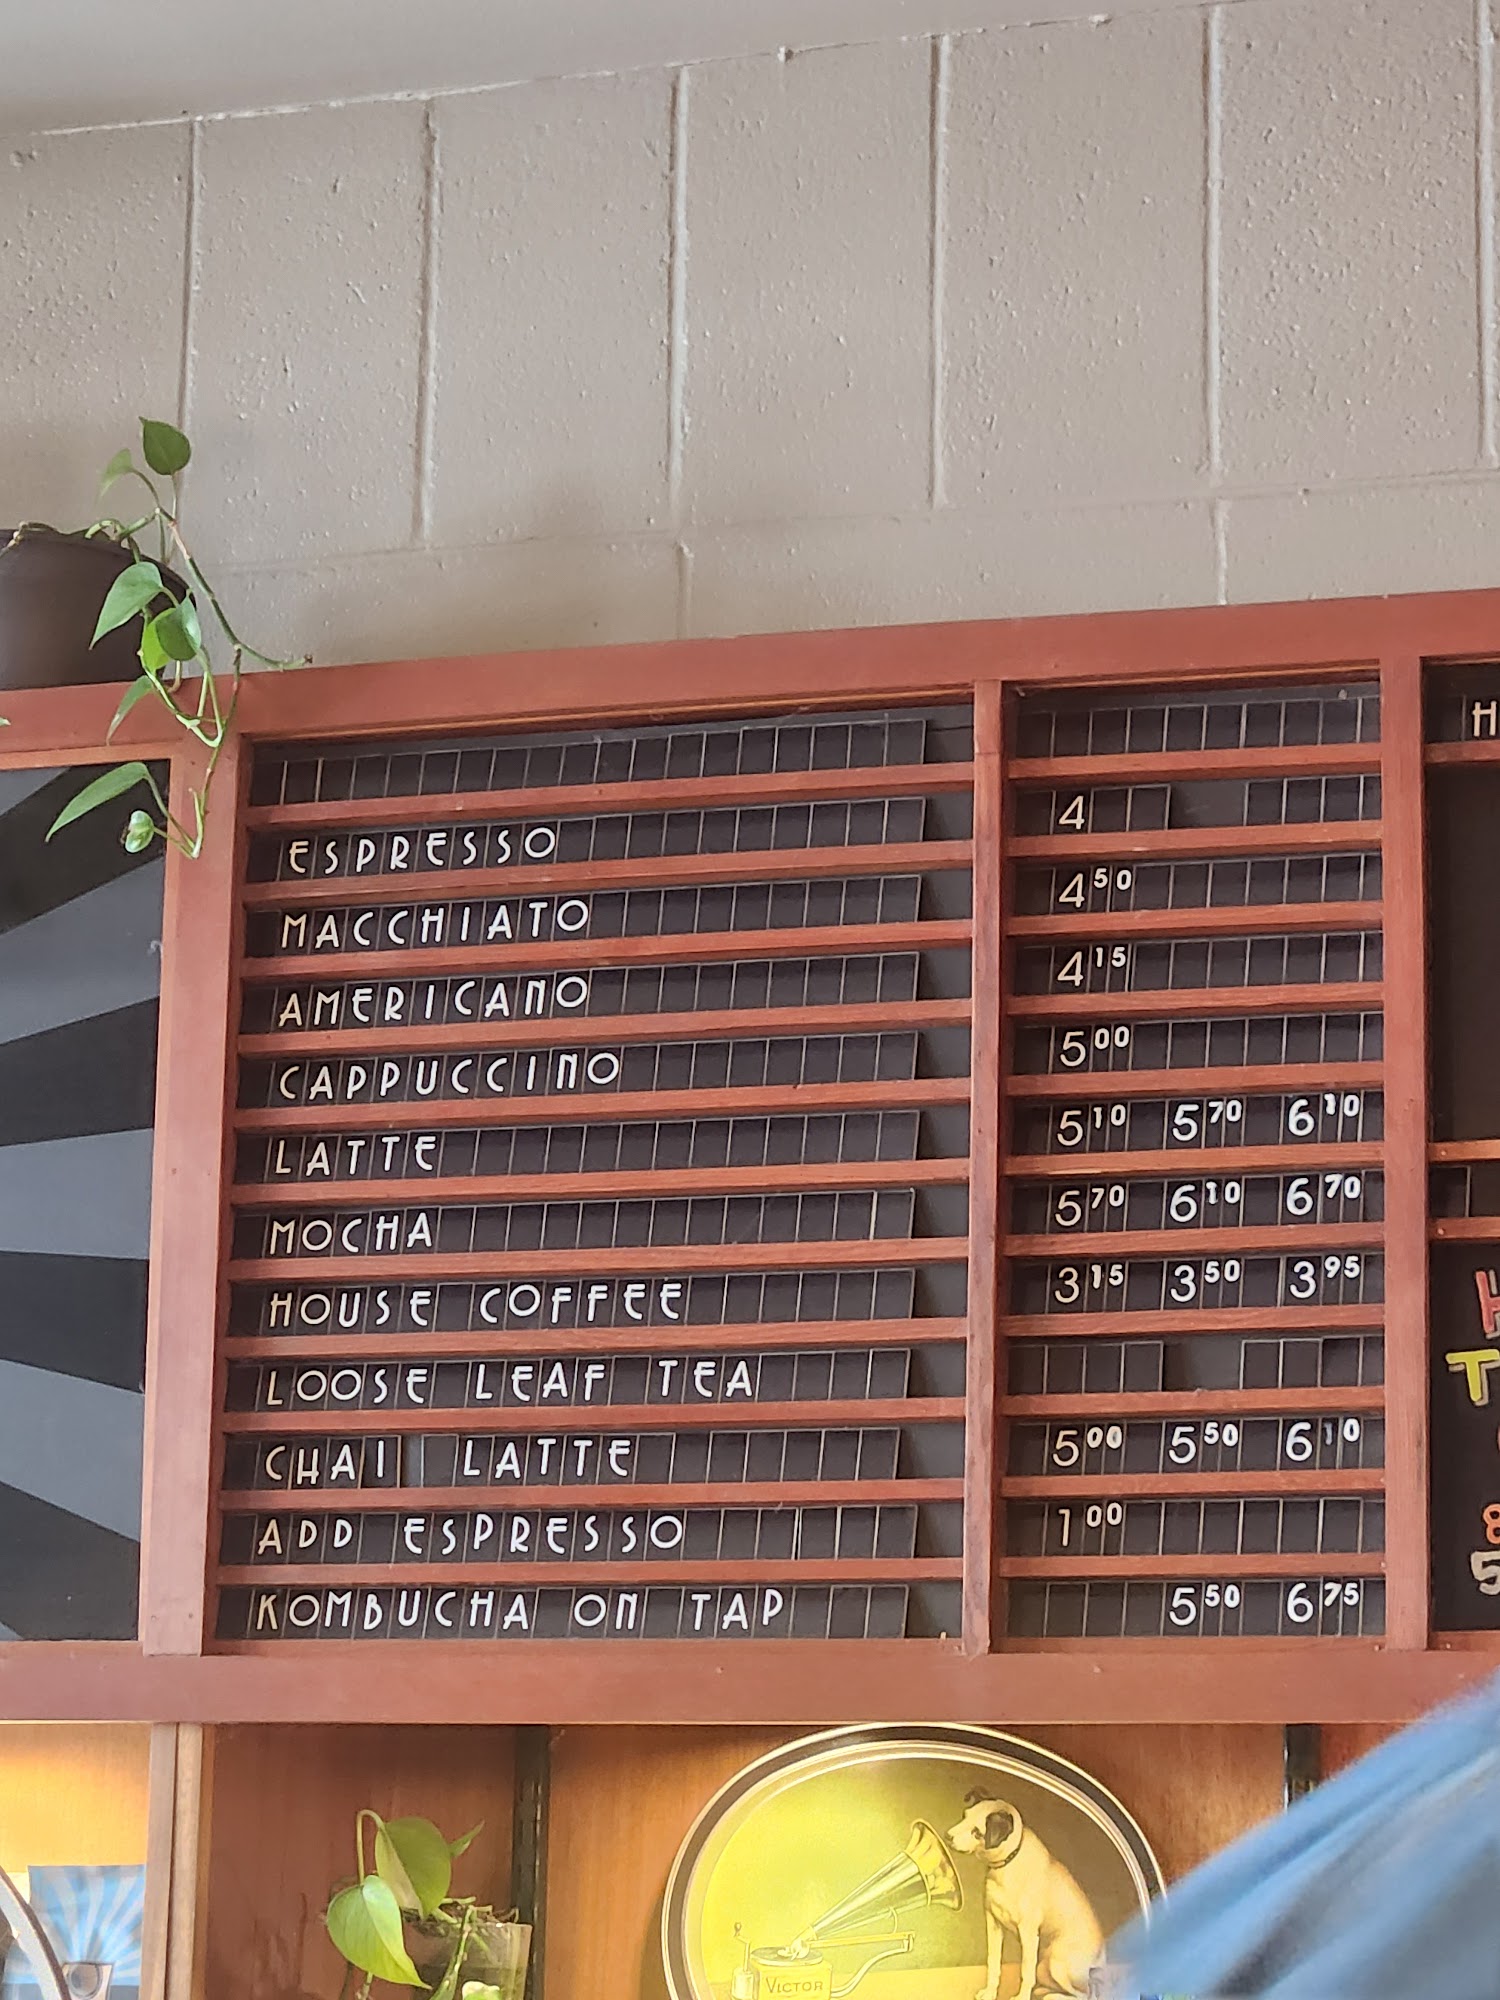 ESPRESSO 4
MACCHIATO 4 50
AMERICANO 4 15
CAPPUCCINO 5 00
LATTE 5 10 5 70 6 10
MOCHA 5 70 6 10 6 70
HOUSE COFFEE 3 15 3 50 3 95
LOOSE LEAF TEA
CHAI LATTE 5 00 5 50 6 10
ADD ESPRESSO 1 00
KOMBUCHA ON TAP 5 50 6 75
VICTOR